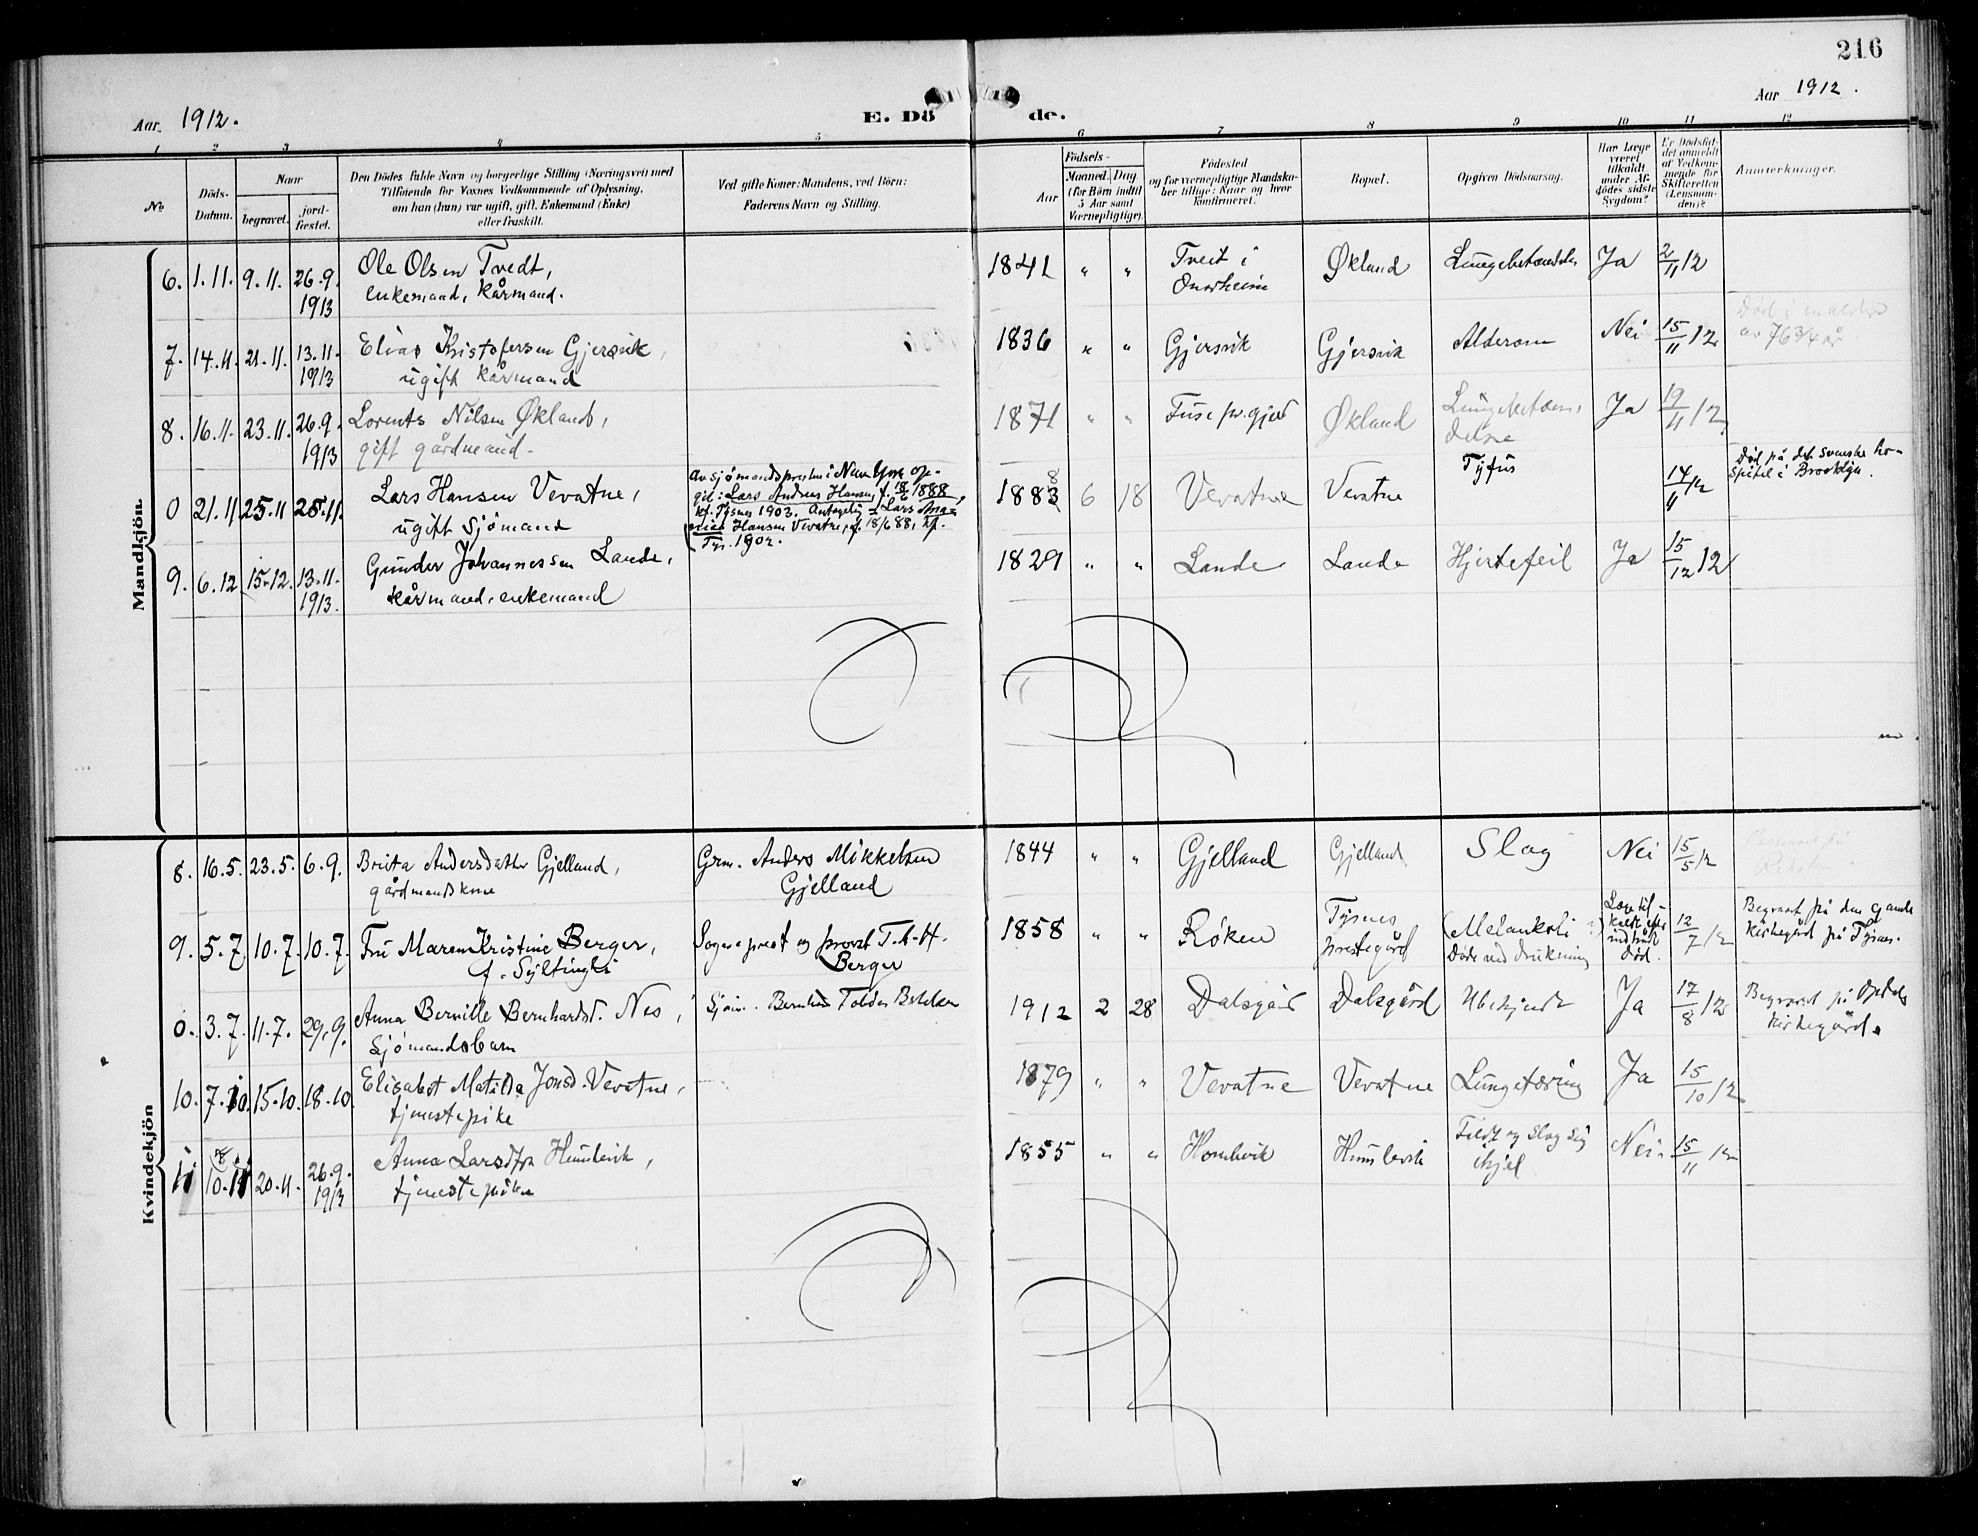 216
Aar 1912.
E. Dö de.
Aar 1912.
1 2 3 4 5 6 7 8 9 10 11 12
No.
Döds-Datum.
Naar
begravet.
jord-fæstet.
Den Dödes fulde Navn og borgerlige Stilling (Næringsvei) med
Tilföiende for Voxnes Vedkommende af Oplysning,
om han (hun) var ugift, gift, Enkemand (Enke)
eller fraskilt.
Ved gifte Koner: Mandens, ved Börn:
Faderens Navn og Stilling.
Födsels-
Aar
Maaned. Dag.
(for Börn indtil
5 Aar samt
Værnepligtige).
Födested
og for værnepligtige Mandskaber tillige: Naar og hvor
konfirmeret.
Bopæl.
Opgiven Dödsaarsag.
Har Læge
været
tilkaldt
under Afdödes sidste
Sygdom?
Er Dödsfaldet anmeldt
af Vedkommende for
Skifteretten
(Lensmanden)?
Anmerkninger.
Mandkjön.
6. 1.11. 9.11. 26.9. 1913 Ole Olsen Tvedt,
enkemand, kårmand.
1841 " " Tveit i
Onarheim Økland Lungebetændelse Ja 2/11 12
7. 14.11. 21.11. 13.11. 1913 Elias Kristofersen Gjersvik,
ugift kårmand
1836 " " Gjersvik Gjersvik Alderdom Nei 15/11 12
Död i en alder
av 76 3/4 år
8. 16.11. 23.11. 26.9. 1913 Lorents Nilsen Økland,
gift gårdmand.
1871 " " Fuse pr.gjeld Økland Lungebetæn-
delse Ja 19/11 12
0 21.11 25.11 28.11. Lars Hansen Vevatne,
ugift Sjömand
Av sjömandspresten i New York op-
git: Lars Andreas Hansen, f. 18/6 1888,
kf. Tysnes 1903. Antagelig = Lars
Hansen Vevatne, f. 18/6 88, kf.
Tys. 1902.
1883 8 6 18 Vevatne Vevatne Tyfus 14/11 12
Död på det svenske ho-
spital i Brooklyn.
9. 6.12 15.12. 13.11. 1913. Gunder Johannessen Lande,
kårmand, enkemand
1829 " " Lande Lande Hjertefeil Ja 15/12 12
Kvindekjön
8. 16.5. 23.5. 6.9. Brita Andersdatter Gjelland,
gårdmandskone
Grm. Anders Mikkelsen
Gjelland
1844 " " Gjelland Gjelland Slag Nei 15/5 12
9. 5.7. 10.7. 10.7. Fru Maren Kristine Berger,
Sogneprest og provst T. A. H.
Berger
1858 " " Röken Tysnes
prestegård (Melankoli ?)
Döde ved drukning
Læge til-
kaldt efter
indtruft
död.
12/7 12
Begravet på den gamle
kirkegård på Tysnes.
0. 3.7. 11.7. 29.9. Anna Bernille Bernhardsd. Nes,
Sjömandsbarn
Sjöm.
1912 2 28 Dalsgård Dalsgård Ubekjendt Ja 17/8 12
Begravet på Opdals
kirkegård.
10. 7.10. 15.10. 18.10. Elisabet Matilda Jonsd. Vevatne,
tjenestepike
1879 " " Vevatne Vevatne Lungetæring Ja 15/10 12
11 10.11 20.11. 26.9. 1913 Anna Larsdtr. Humlevik,
tjenestepike
1855 " " Humlevik Humlevik Faldt og slog sig
ihjel Nei. 15/11 12